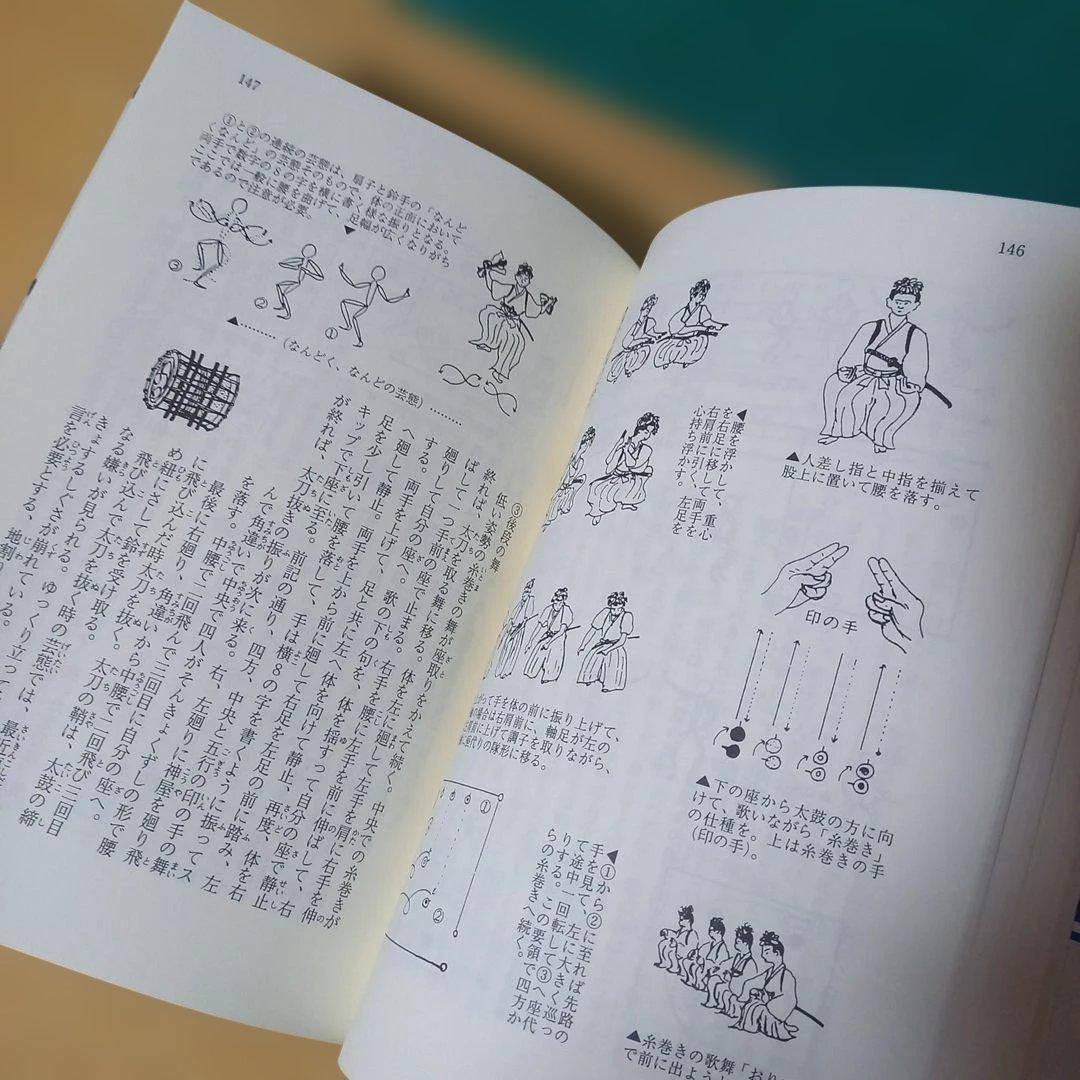 146
▲人差し指と中指を揃えて
股上に置いて腰を落す。
◀腰を浮かして、重心
を右足に移して、両手を
右肩前に引く。左足を
心持ち浮かす。
印の手
▲下の座から太鼓の方に向
けて、歌いながら「糸巻き」
の仕種を。上は糸巻きの手
(印の手)。
って手を体の前に振り上げて、
場合は右肩前に、軸足が左の
肩前に上げて調子を取りながら、
座代りの隊形に移る。
①
②
◀①から②に至れば先路の
手を見て、左に大きく巡っ
て途中一回転して③へ
りする。この要領で四方座代
らの糸巻きへ続く。
▲糸巻きの歌舞「おり
で前に出よう
147
①と②の連続の芸態は、扇子と鈴手の「なんど
くなんど」の芸態そのもので、体の正面において
両手で数字の8の字を横に書く様な振りとなる。
ここでは一般に腰を曲げて、足幅が広くなりがち
であるので注意が必要。
▼
③
②
①
▲………(なんどく、なんどの芸態)………
③後段の舞
低い姿勢の糸巻きの舞が座取りをかえて続く。中央での糸巻きが
終れば、太刀を取る舞に移る。体を左に廻して左手を肩に右手を伸
ばして一つ手前の座で止まる。右手を腰に左手を前に伸ばして、右
廻りして自分の座へ。歌の下の句を、体を揺すって自分の座で静止
する。両手を上げて、足と共に左へ体を向けて静止、再度、体を右
へ廻して静止。両手を上から前に廻して右足を左足の前に踏み、左
足を少し引いて腰を落して、手は横8の字を書くように振ってス
キップで下座に至る。前記の通り、四方、中央と五行の印の手の舞
が終れば、太刀抜きの振りが次に来る。右、左廻りに神屋を廻り飛
んで角違いで中央で四人がそんきょくずしの形で腰
を落す。中腰で二回飛んで三回目に自分の座へ。
最後に右廻り、角違いから中腰で二回飛び三回目
に飛び込んだ時太刀を抜く。太刀の鞘は、太鼓の締
め紐にさして鈴を受け取る。
飛び込んで太刀を抜く時の芸態では、
なる嫌いが見られる。ゆっくり立って
きょするしぐさが崩れている。最近
言を必要とする、地割